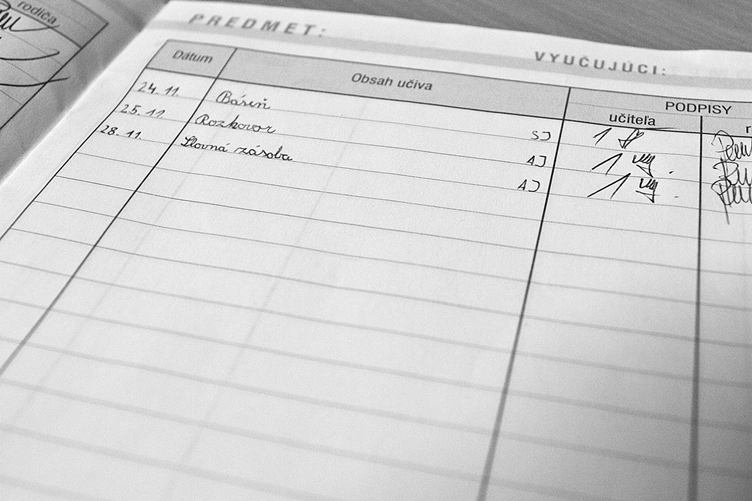 rodiča
PREDMET:
VYUČUJÚCI:
Dátum
Obsah učiva
PODPISY
učiteľa
24. 11. Báseň SJ 1
25. 11. Rozhovor AJ 1
28. 11. Slovná zásoba AJ 1